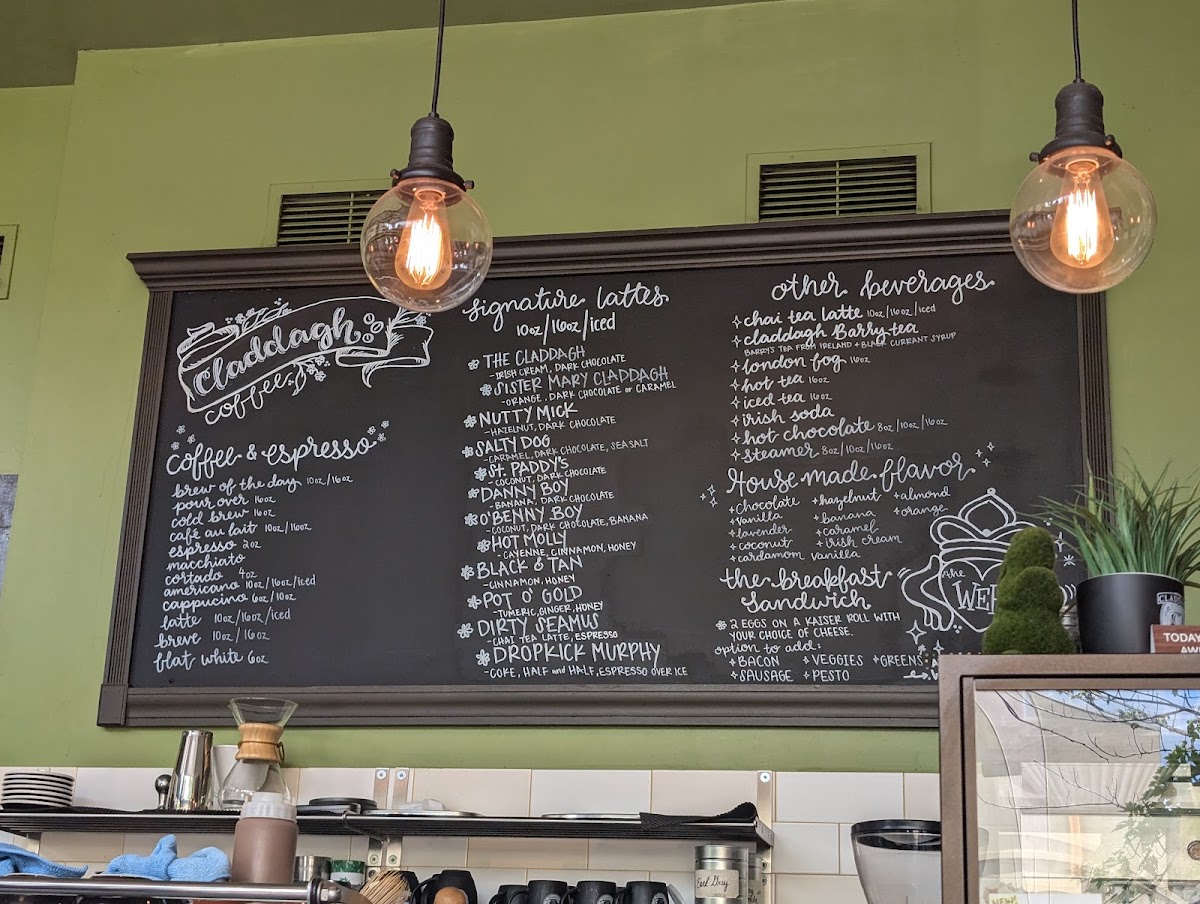 Claddagh
coffee
coffee & espresso
brew of the day 10oz/16oz
pour over 16oz
cold brew 16oz
café au lait 10oz/16oz
espresso 2oz
macchiato
cortado 4oz
americano 10oz/16oz/iced
cappucino 6oz/10oz
latte 10oz/16oz/iced
breve 10oz/16oz
flat white 6oz
signature lattes
10oz/16oz/iced
THE CLADDAGH
-IRISH CREAM, DARK CHOCOLATE
SISTER MARY CLADDAGH
-ORANGE, DARK CHOCOLATE or CARAMEL
NUTTY MICK
-HAZELNUT, DARK CHOCOLATE
SALTY DOG
-CARAMEL, DARK CHOCOLATE, SEA SALT
St. PADDY'S
-COCONUT, DARK CHOCOLATE
DANNY BOY
-BANANA, DARK CHOCOLATE
O'BENNY BOY
-COCONUT, DARK CHOCOLATE, BANANA
HOT MOLLY
-CAYENNE, CINNAMON, HONEY
BLACK & TAN
-CINNAMON, HONEY
POT O' GOLD
-TUMERIC, GINGER, HONEY
DIRTY SEAMUS
-CHAI TEA LATTE, ESPRESSO
DROPKICK MURPHY
-COKE, HALF and HALF, ESPRESSO OVER ICE
other beverages
chai tea latte 10oz/16oz/iced
claddagh Barry tea
BARRY'S TEA FROM IRELAND + BLACK CURRANT SYRUP
london fog 16oz
hot tea 16oz
iced tea 16oz
irish soda
hot chocolate 8oz/10oz/16oz
steamer 8oz/10oz/16oz
House made flavor
+chocolate +hazelnut +almond
+vanilla +banana +orange
+lavender +caramel
+coconut +irish cream
+cardamom vanilla
the breakfast
sandwich
2 EGGS ON A KAISER ROLL WITH
YOUR CHOICE OF CHEESE.
option to add:
+BACON +VEGGIES +GREENS
+SAUSAGE +PESTO
the
WEE
TODAY
AW
Earl Grey
NEW!